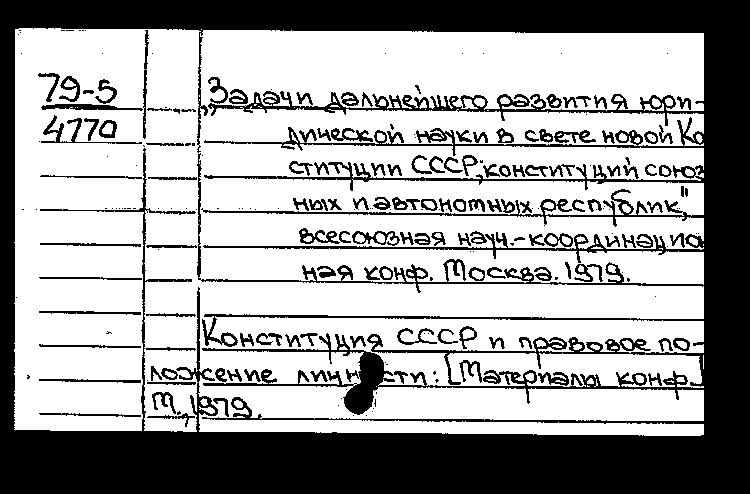 79-5
4770
„Задачи дальнейшего развития юри-
дической науки в свете новой Ко
ституции СССР, конституций союз
ных и автономных республик",
всесоюзная науч.-координацио
ная конф. Москва. 1979.
Конституция СССР и правовое по-
ложение личности: [Материалы конф.]
М., 1979.